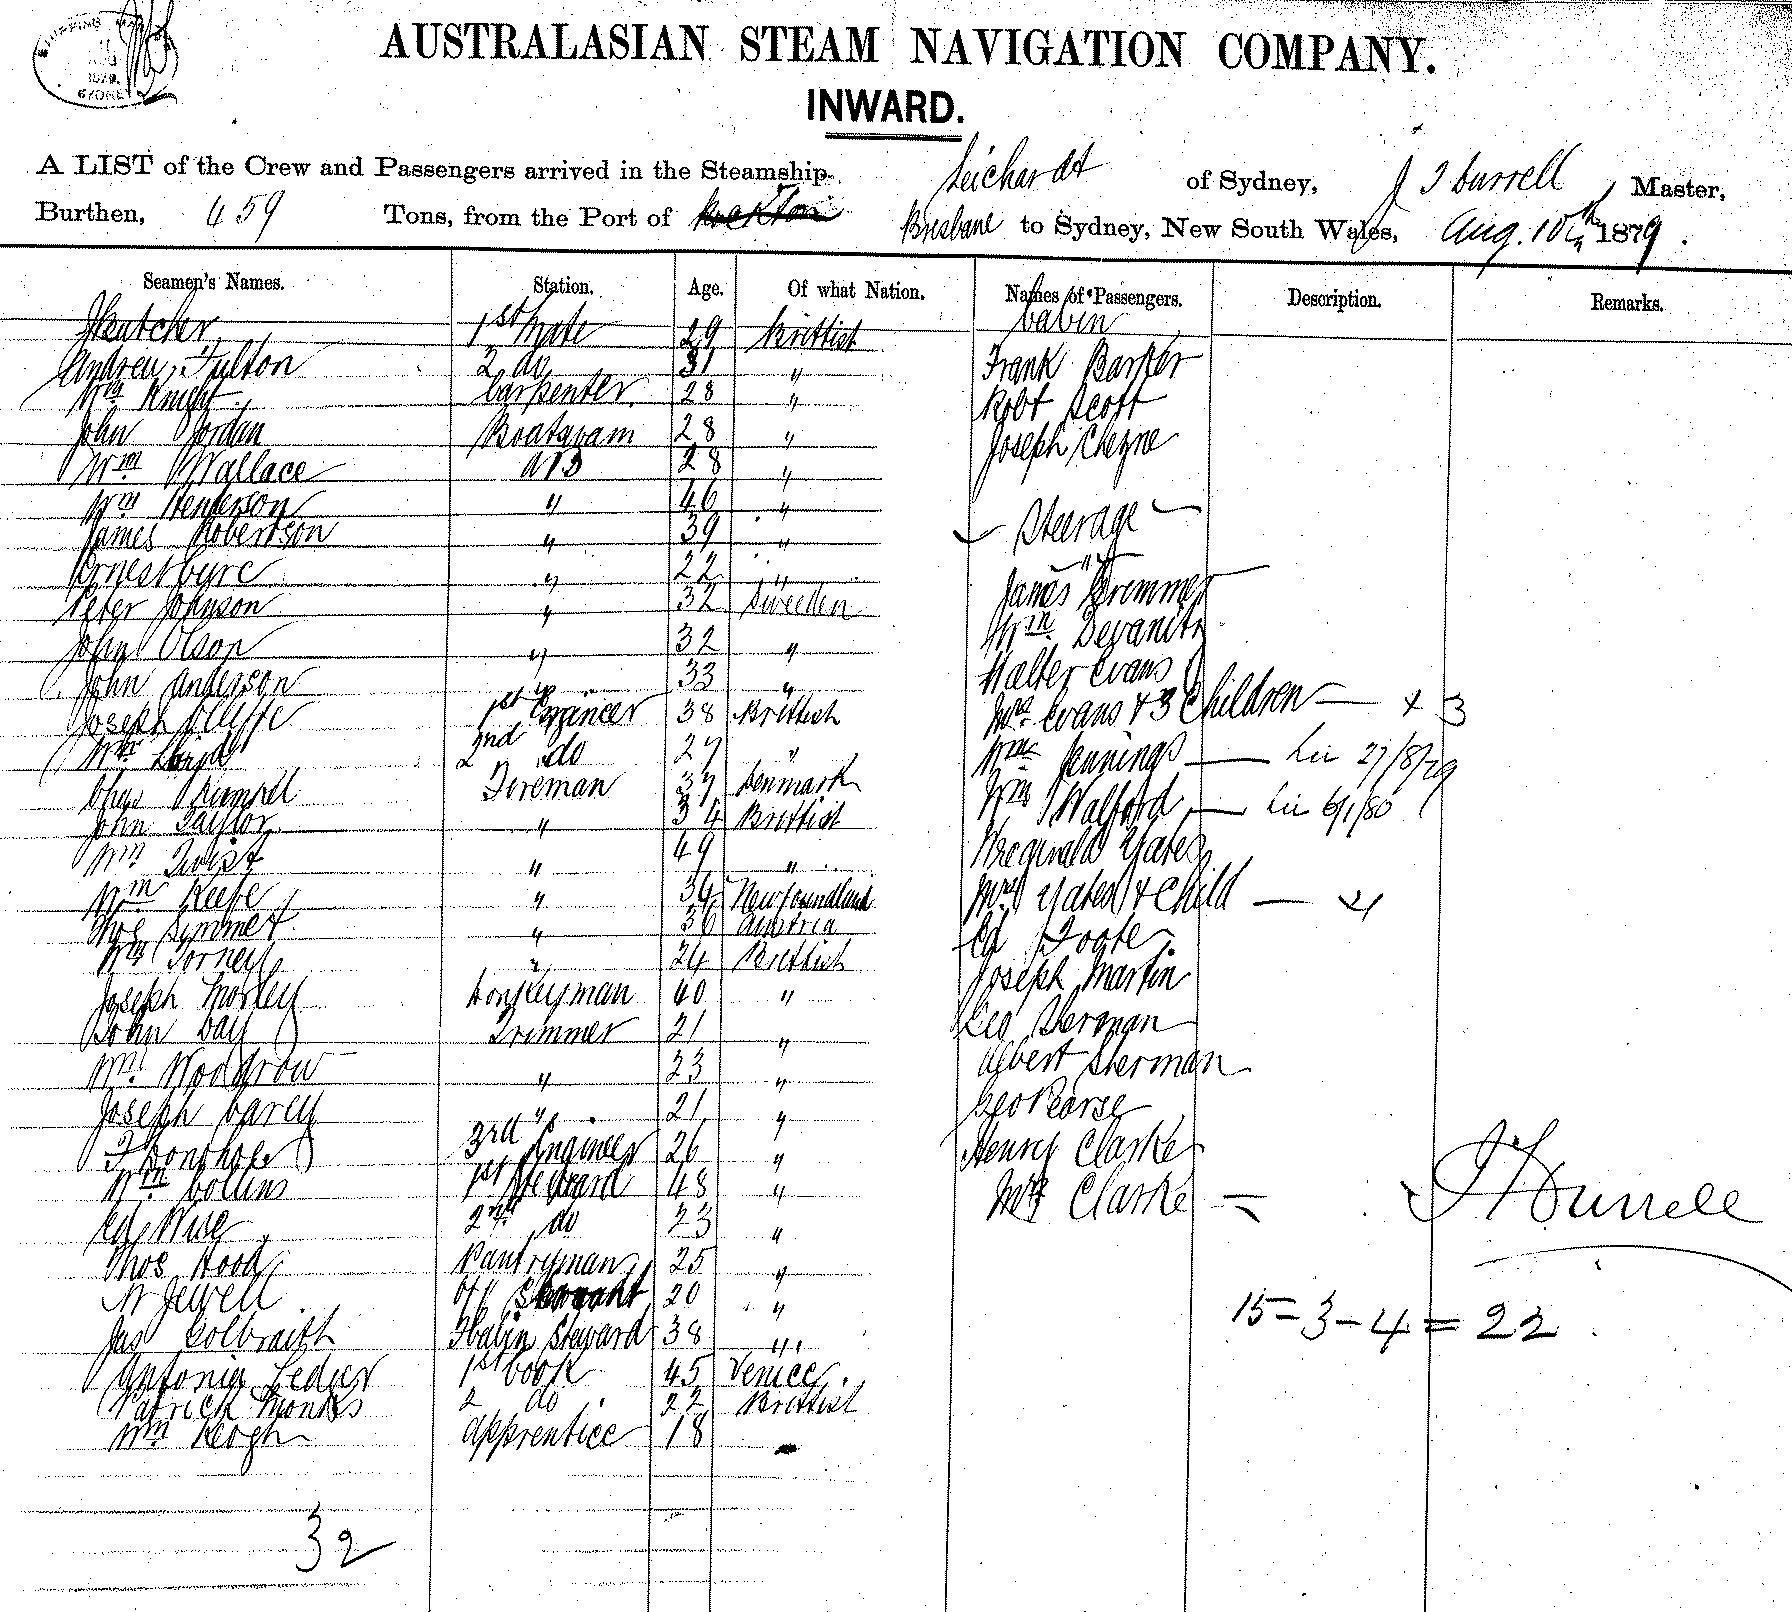 SHIPPING MASTER
1879
SYDNEY
AUSTRALASIAN STEAM NAVIGATION COMPANY.
INWARD.
A LIST of the Crew and Passengers arrived in the Steamship Leichardt of Sydney, J T Burrell, Master,
Burthen, 459 Tons, from the Port of Brisbane to Sydney, New South Wales, Aug. 10th 1879.
Seamen's Names. Station. Age. Of what Nation. Names of Passengers. Description. Remarks.
Butcher 1st Mate 29 Brittish Cabin
Andrew Fulton 2 do 31 " Frank Barker
Wm Knight Carpenter 28 " Robt Scott
John Jordan Boatswain 28 " Joseph Cheyne
Wm Wallace AB 28 "
Wm Henderson " 46 " Steerage
James Robertson " 39 "
Ernest " 22 " James Bremmer
Peter Johnson " 32 Sweeden Wm
John Olson " 32 " Walter Evans
John Anderson " 33 " Mrs Evans + 3 Children — + 3
Joseph 1st Engineer 38 Brittish Wm Jennings — Lic 27/8/79
Wm Lloyd 2nd do 27 " Wm Walford — Lic 6/1/80
Chas Fireman 37 Denmark Reginald Yates
John Taylor " 34 Brittish Mrs Yates + Child —
Wm Twist " 49 " Ed Foote
Wm Keefe " 34 Newfoundland Joseph Martin
Thos " 36 Austria Leo Sherman
Wm Torney " 24 Brittish Albert Sherman
Joseph Morley Donkeyman 40 " Geo Pearse
John Day Trimmer 21 " Henry Clarke
Wm Woodrow " 23 " Mrs Clarke
Joseph Carey " 21 "
T Donohoe 3rd Engineer 26 "
Wm Collins 1st Steward 48 " J T Burrell
Ed Wise 2nd do 23 "
Thos Hood Pantryman 25 "
W Jewell Off Servant 20 " 15 = 3 - 4 = 22
Jas Colbraith F Cabin Steward 38 "
Antonia 1st Cook 45 Venice
Patrick Monks 2 do 22 Brittish
Wm Keogh Apprentice 18
32